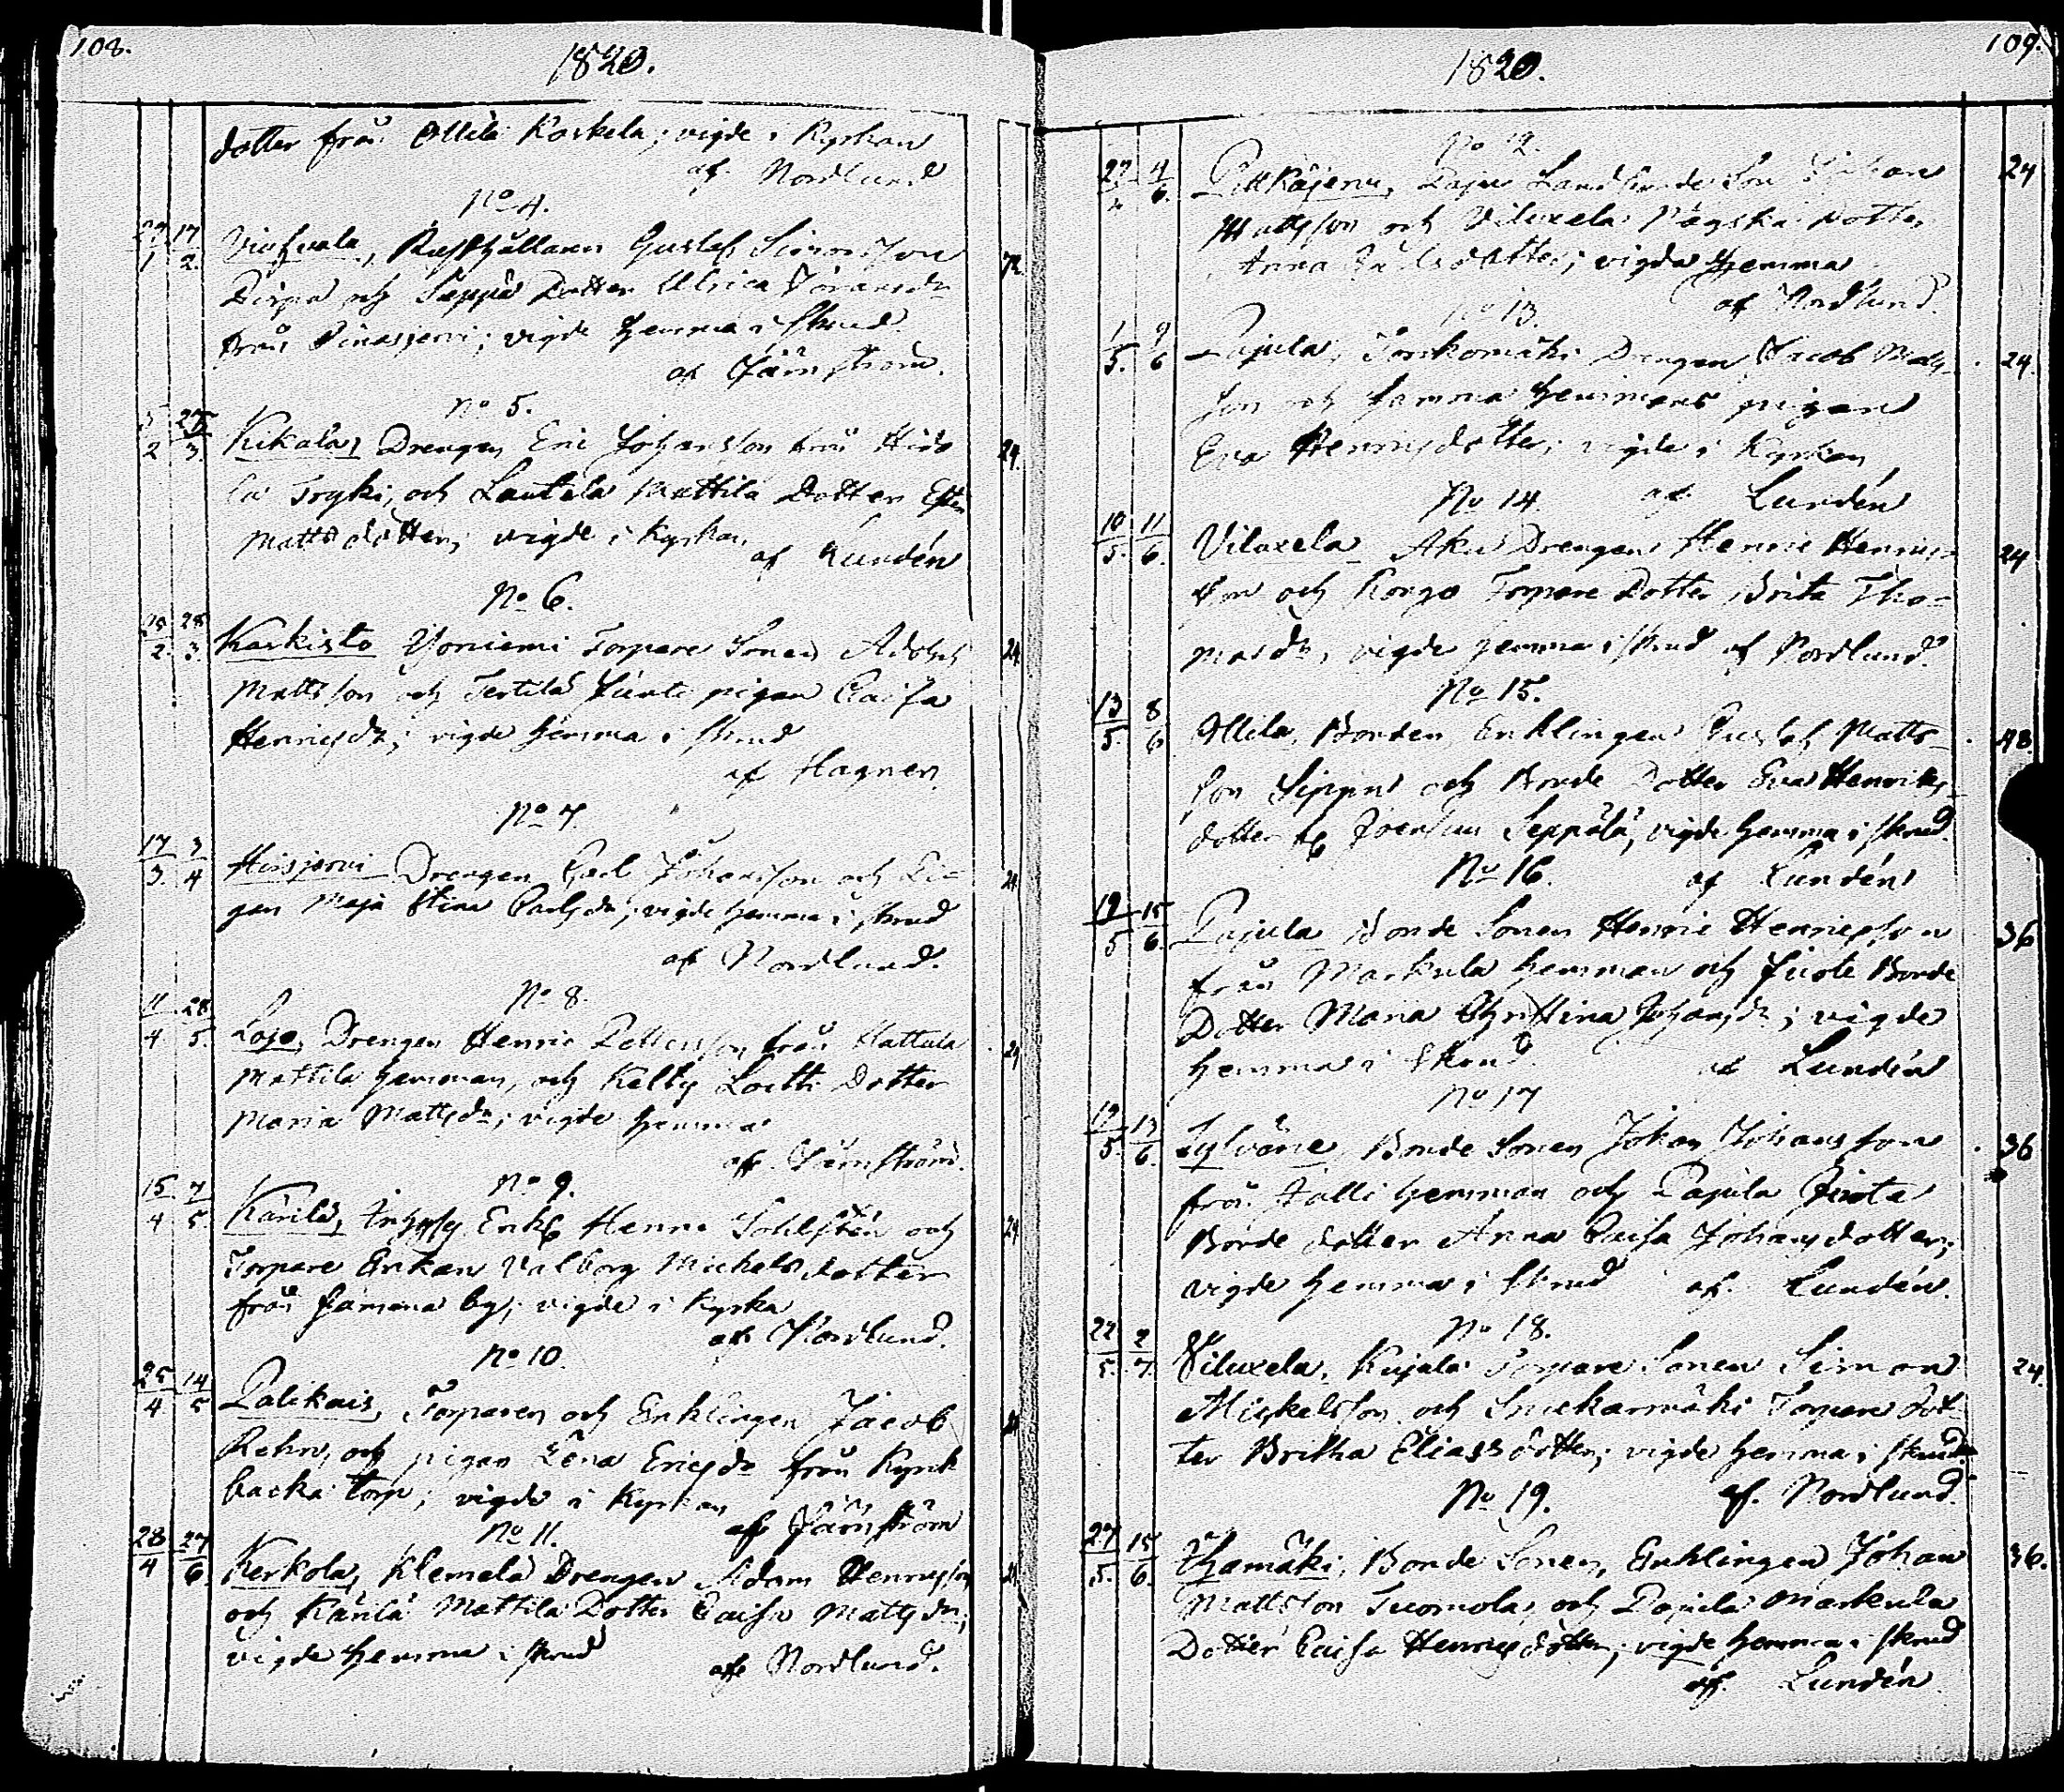 108.
1820.
dotter från Ollila Koskela; vigde i Kyrkan
af Nordlund
No 4.
27/1 17/2. Rusthållaren Gustaf Simonsson 72.
och Seppä Dotter Ulrica
från; vigde hemma i skrud
af Järnström.
No 5.
5/2 25/3. Kikala, Drengen Eric Johansson från
Tryki, och Lautela Mattila Dotter
Mattsdotter; vigde i Kyrkan 24.
af Lundén
No 6.
28/3. Karkisto Yoniemi Torpare Sonen Adolph 24.
Mattsson och Tertilä pigan Caisa
Henricsdr; vigde hemma i skrud
af Hagner
No 7.
17/3. 3/4 Hirsjervi Drengen Carl Johansson och Pi- 24.
gan Maja Stina Carlsdr; vigde hemma i skrud
af Nordlund.
No 8.
11/4 28/5. Lojo, Drengen Henric Pettersson från Hattula 24
Mattila hemman, och Loitti Dotter
Maria Mattsdr; vigde hemma
af Järnström.
No 9.
15/4 7/5. Kärilä, Enkl Henric och 24
Torpare Enkan Valborg Michelsdotter
från samma by; vigde i Kyrka
af Nordlund.
No 10.
25/4 14/5 Palikais, Torparen och Enklingen Jacob
Rehn, och pigan Lena Ericsdr från
backa torp; vigde i Kyrkan
af Järnström
No 11.
28/4 27/6. Kerkola, Klemelä Drengen Adam Henricsson
och Kärilä Mattila Dotter Caisa Mattsdr;
vigde hemma i skrud
af Nordlund.
109.
1820.
No 12.
4/6. Pitkäjervi, Paju Son Johan 24
Mattsson och Viluxela Dotter
Anna; vigda hemma
af Nordlund.
No 13.
1/5. 9/6 Pajula, Drengen Jacob Matts- 24.
son och samma hemmans pigan
Eva Henricsdotter; vigde i Kyrkan
af Lundén
No 14.
10/5. 11/6. Viluxela Aku Drengen Henric Henrics- 24
son och Torpare Dotter Brita Tho-
masdr, vigde hemma i skrud af Nordlund.
No 15.
13/5. 8/6 Ollila, Bonden Enklingen Gustaf Matts- 48.
son Sippu och Bonde Dotter Eva Henriks-
dotter fr Joensuu Seppälä, vigde hemma i skrud.
af Lundén
No 16.
19/5 15/6. Pajula Bonde Sonen Henric Henricsson 36
från Markula hemman och Bonde
Dotter Maria Christina Johansdr; vigde
hemma i skrud
af Lundén
No 17
19/5. 13/6. Sylväne, Bonde Sonen Johan Johansson 36
från Jalli hemman och Pajula
Bonde dotter Anna Caisa Johansdotter;
vigde hemma i skrud af. Lundén.
No 18.
22/5. 2/7. Viluxela, Kujala Torpare Sonen Simon 24.
Mickelsson och Torpare dot-
ter Britha Eliassdotter; vigde hemma i skrud
af. Nordlund.
No 19.
27/5. 15/6. Bonde Sonen, Enklingen Johan 36.
Mattsson Tuomola, och Pajula Markula
Dotter Caisa Henricsdotter; vigde hemma i skrud
af. Lundén